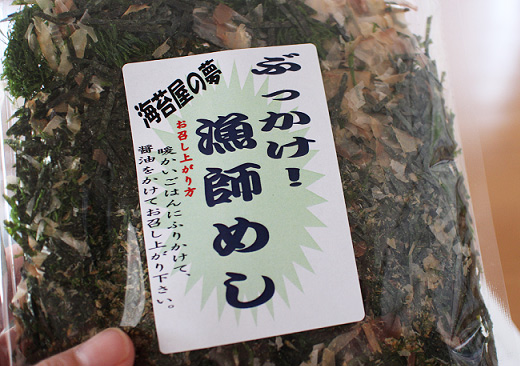 ぶっかけ!
漁師めし
海苔屋の夢
お召し上がり方
暖かいごはんにふりかけて、
醤油をかけてお召し上がり下さい。